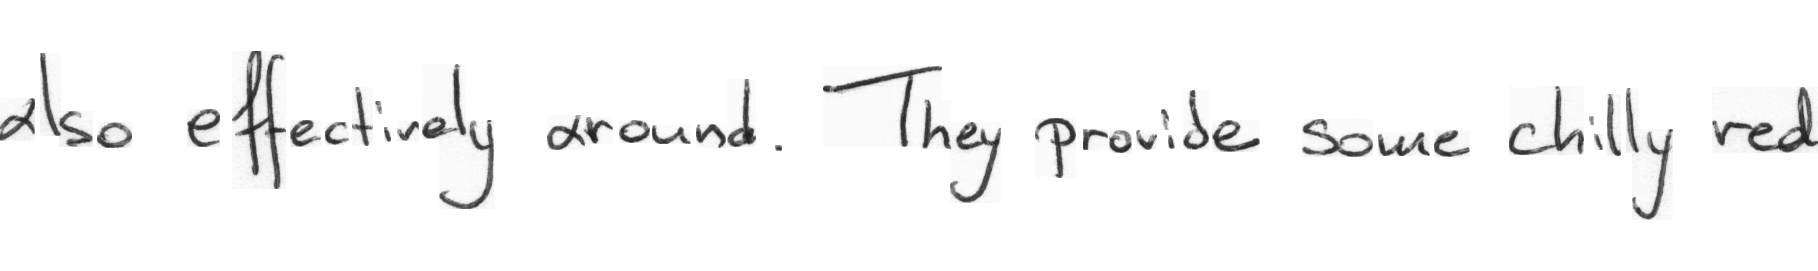 also effectively around. They provide some chilly red